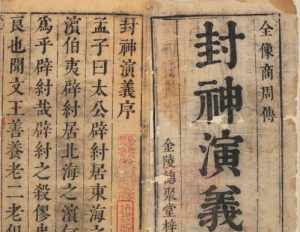 全像商周傳
封神演義
金陵德聚堂梓
封神演義序
孟子曰太公辟紂居東海之
濱伯夷辟紂居北海之濱
為乎辟紂哉辟紂之殺僇
良也聞文王善養老二老